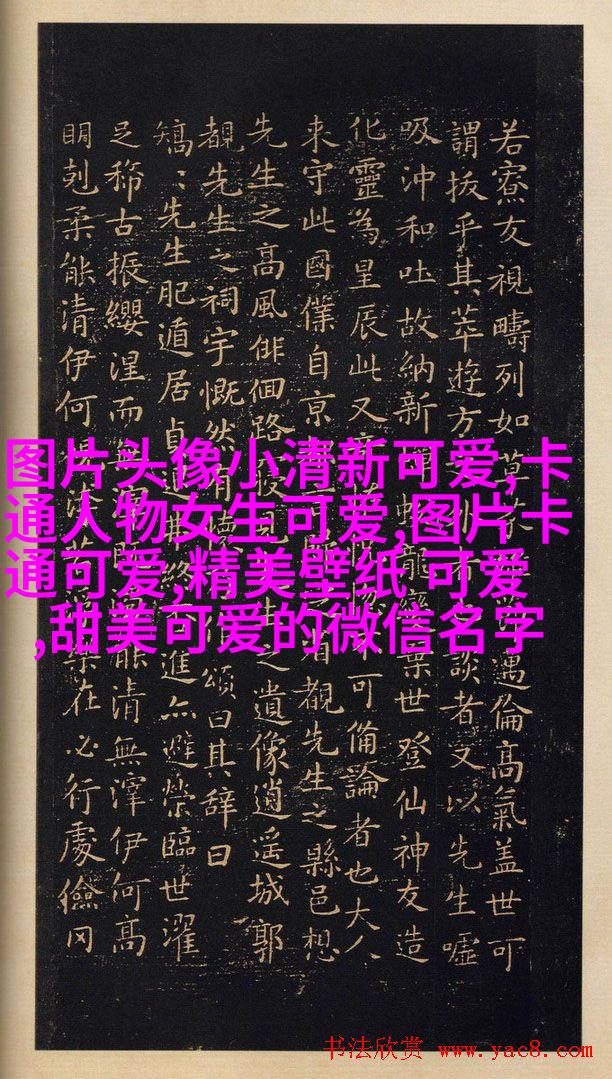 若寮友視疇列如草邁倫高氣蓋世可
謂拔乎其萃遊方談者又以先生噓
吸沖和吐故納新龍變棄世登仙神友造
化靈為星辰此又可備論者也大人
来守此國僕自京省覩先生之縣邑想
先生之高風俳佪路寢見先生之遺像逍遥城郭
覩先生之祠宇慨然有頌曰其辞曰
矯〻先生肥遁居貞退弗終進亦避榮臨世濯
足稀古振纓涅而無能清無滓伊何高
明剋柔能清伊何浮樂在必行處儉罔
图片头像小清新可爱,卡
通人物女生可爱,图片卡
通可爱,精美壁纸 可爱
,甜美可爱的微信名字
书法欣赏 www.yac8.com